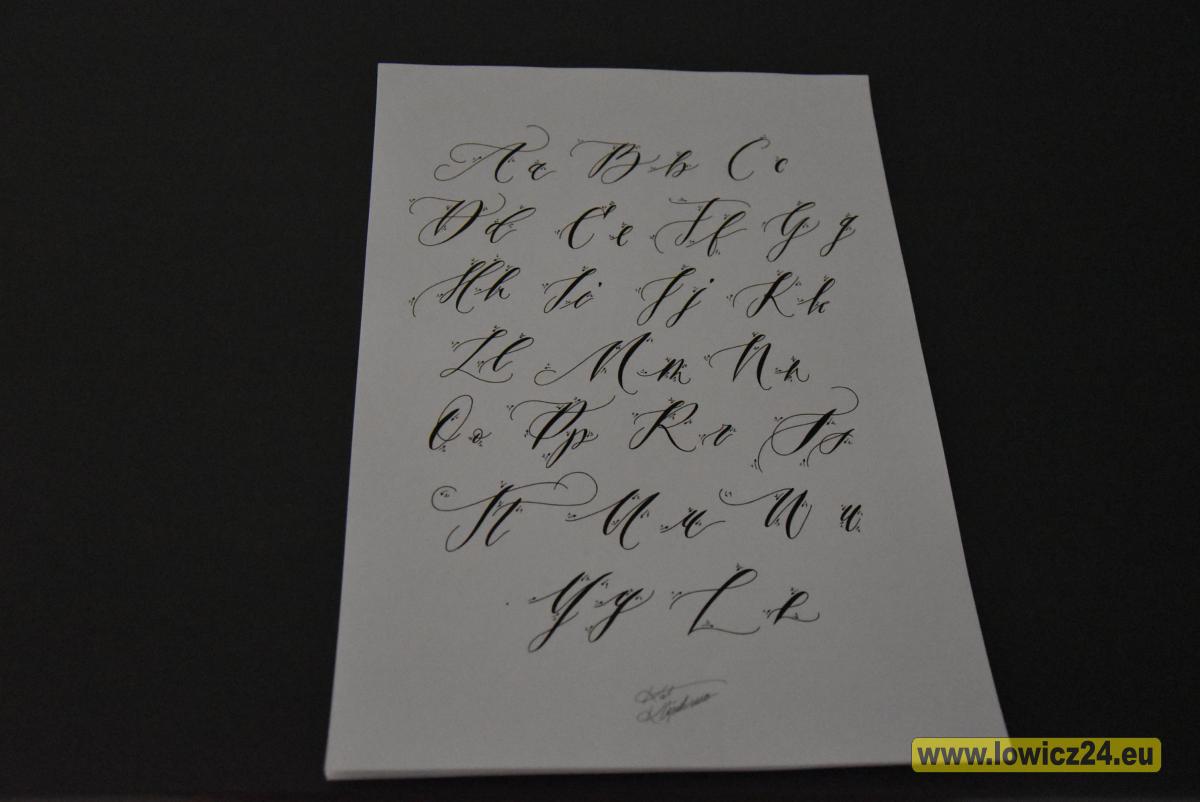 Aa Bb Cc
Dd Ee Ff Gg
Hh Ii Jj Kk
Ll Mm Nn
Oo Pp Rr Ss
Tt Uu Ww
Yy Zz
www.lowicz24.eu